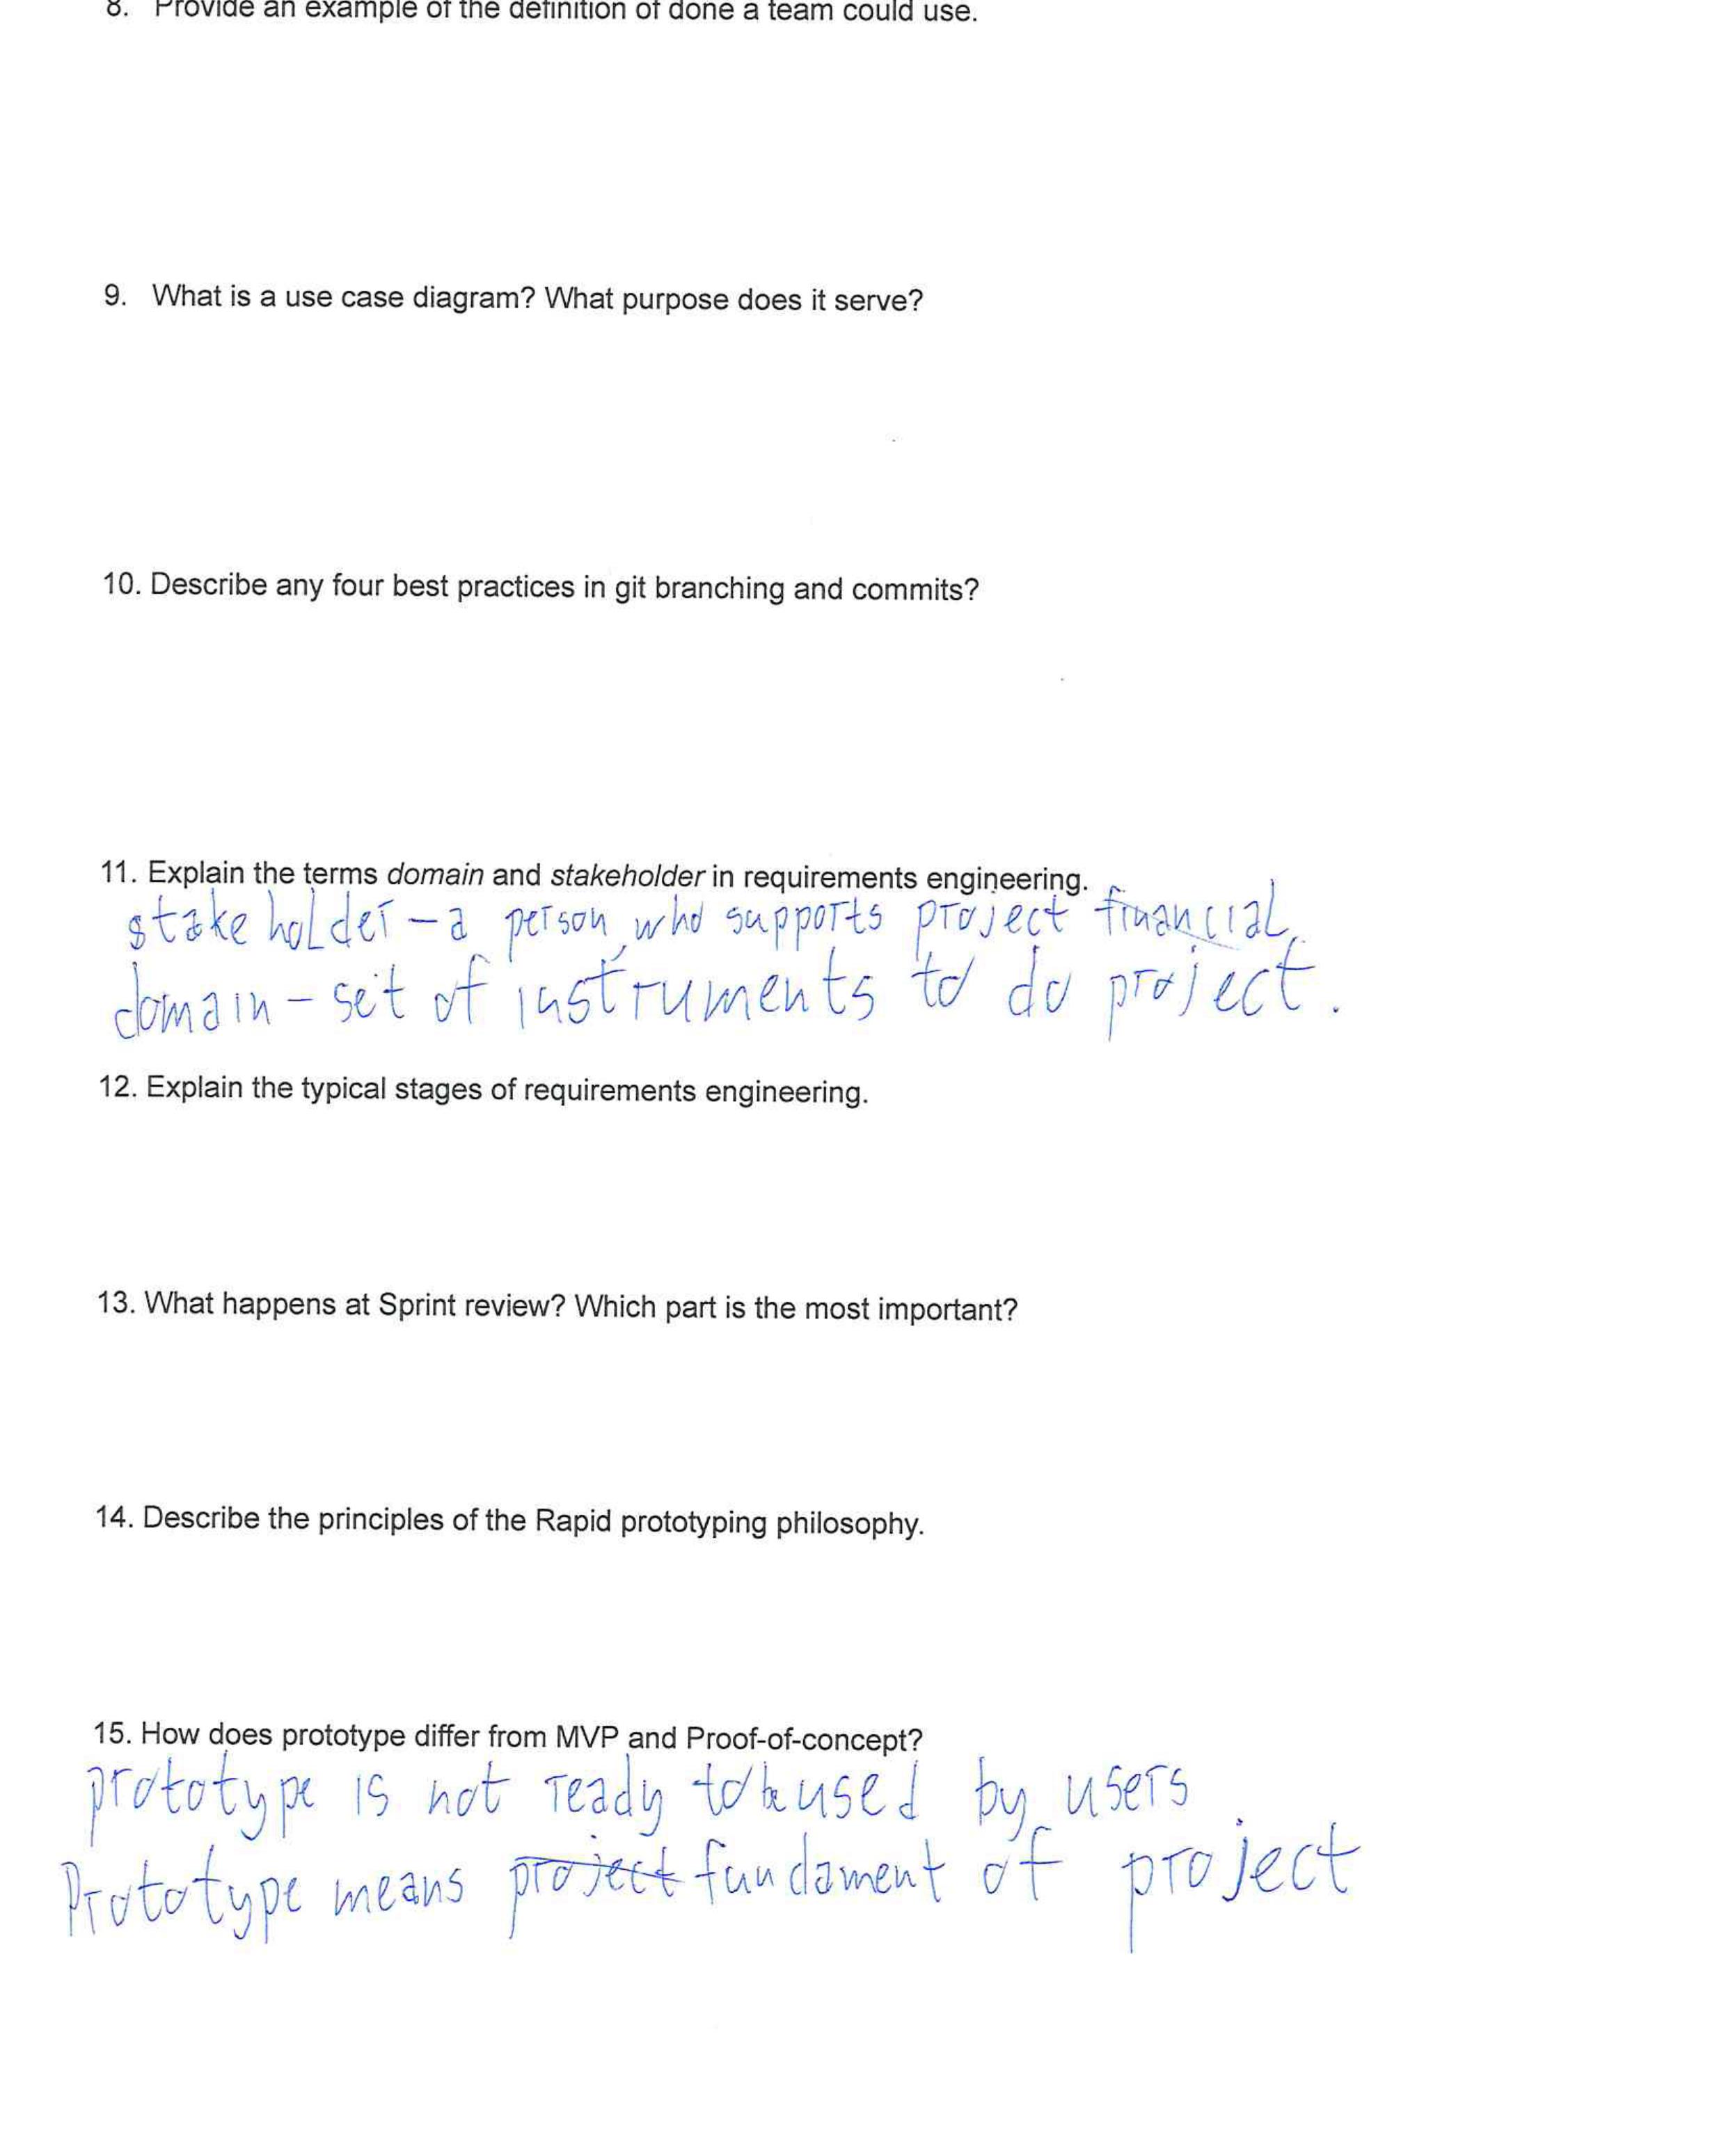 8. Provide an example of the definition of done a team could use.
9. What is a use case diagram? What purpose does it serve?
10. Describe any four best practices in git branching and commits?
11. Explain the terms domain and stakeholder in requirements engineering.
stakeholder – a person, who supports project financial
domain – set of instruments to do project.
12. Explain the typical stages of requirements engineering.
13. What happens at Sprint review? Which part is the most important?
14. Describe the principles of the Rapid prototyping philosophy.
15. How does prototype differ from MVP and Proof-of-concept?
prototype is not ready to be used by users
Prototype means project fundament of project